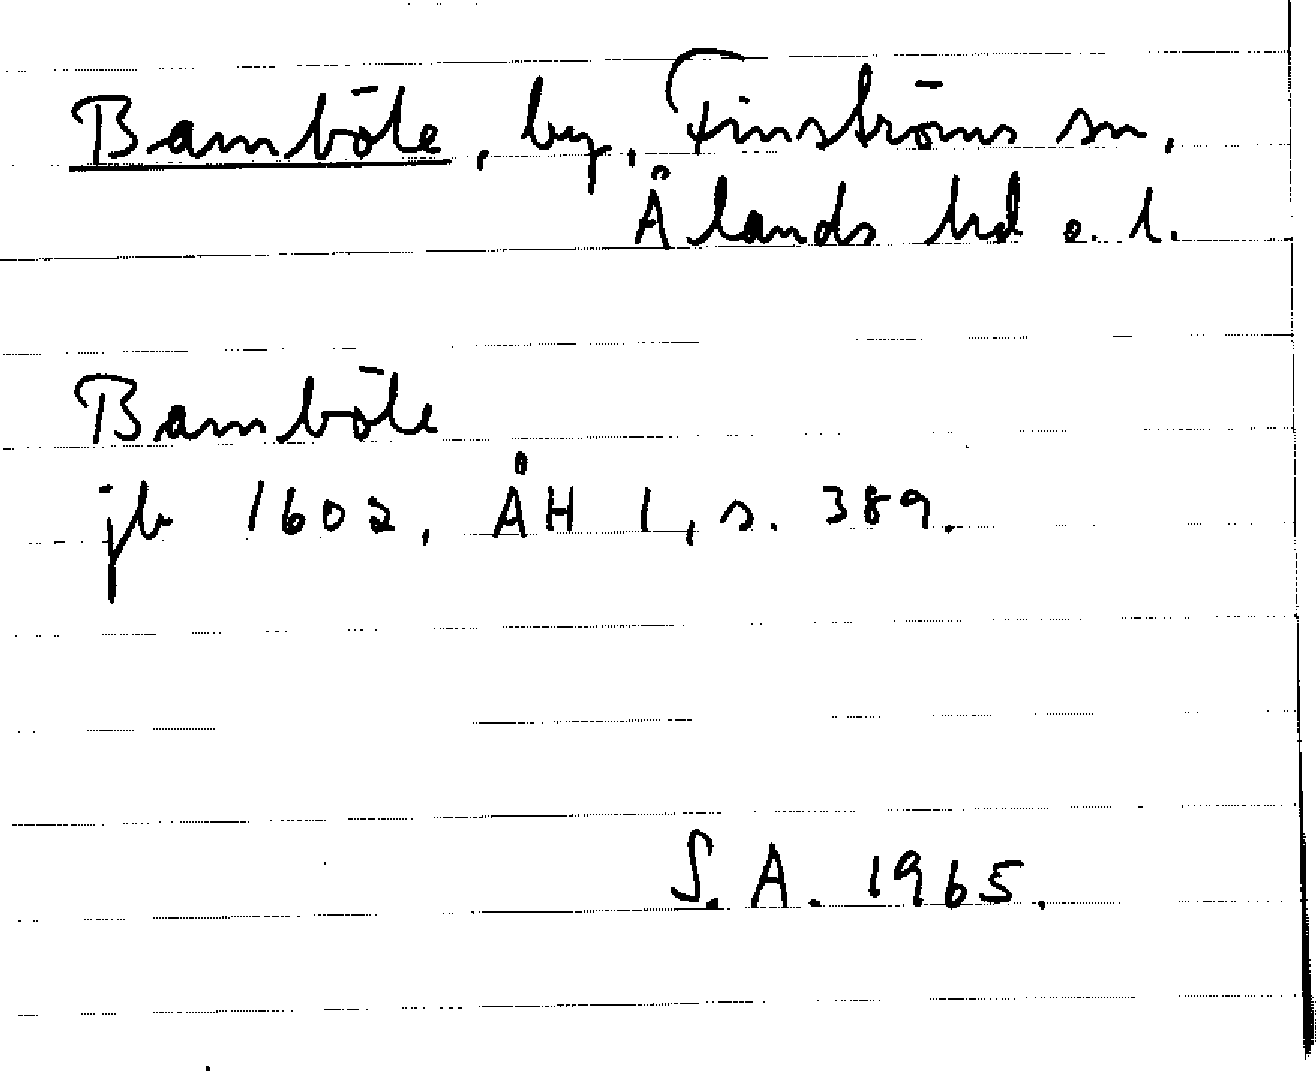 Bamböle, by, Finströms sn,
Ålands hd o. l.
Bamböle
jb 1602, ÅH 1, s. 389.
S. A. 1965.